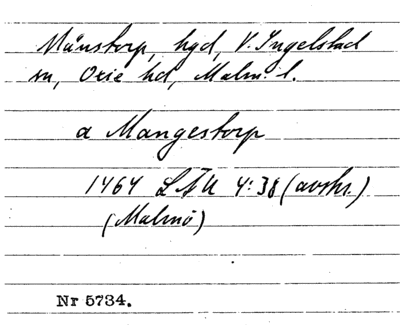 Månstorp, hgd, V. Ingelstad
sn, Oxie hd, Malm. l.
a Mangestorp
1464 LÅU 4:38 (avskr.)
(Malmö)
Nr 5734.